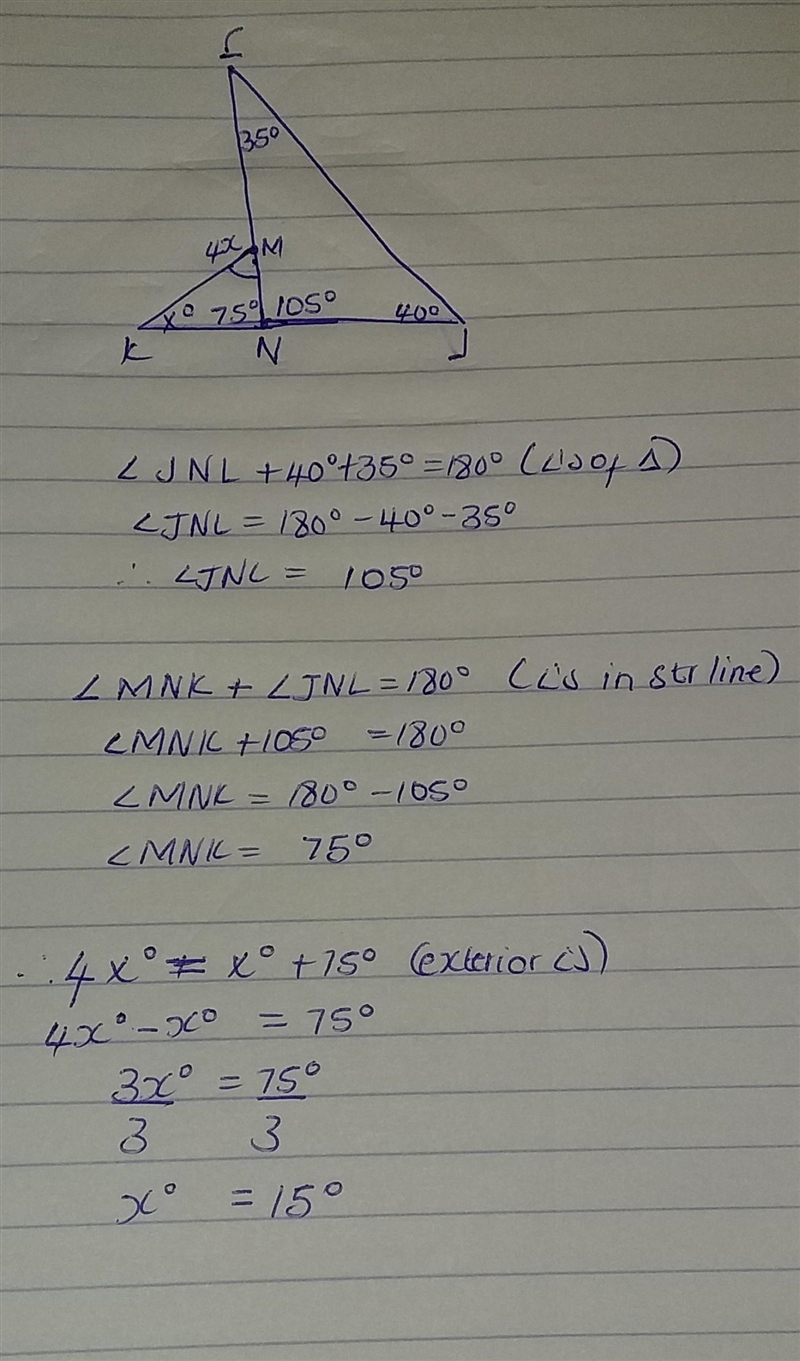 L
35°
4x M
x° 75° 105° 40°
K N J
∠JNL + 40° + 35° = 180° (∠'s of Δ)
∠JNL = 180° - 40° - 35°
∴ ∠JNL = 105°
∠MNK + ∠JNL = 180° (∠'s in str line)
∠MNK + 105° = 180°
∠MNK = 180° - 105°
∠MNK = 75°
∴ 4x° = x° + 75° (exterior ∠'s)
4x° - x° = 75°
3x° = 75°
3 3
x° = 15°